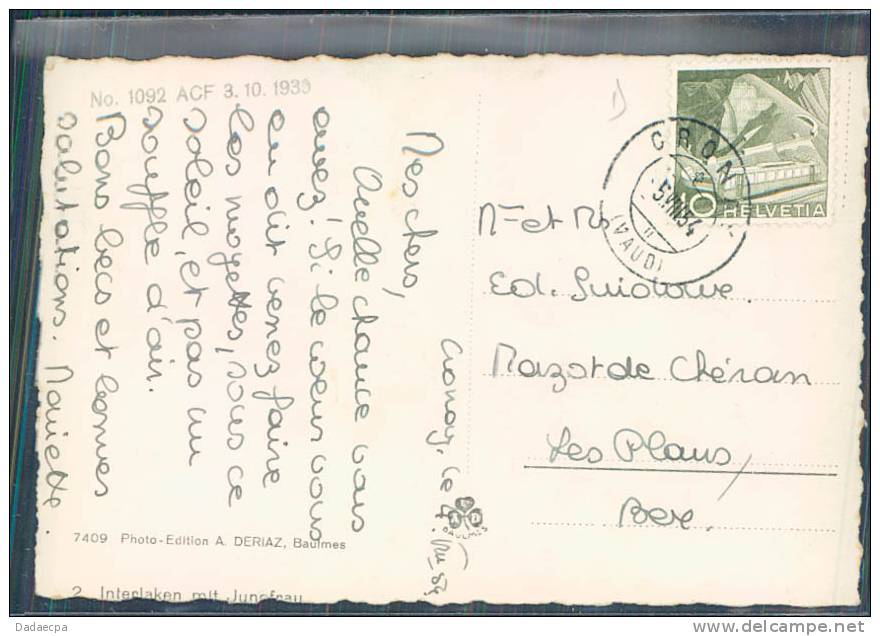 No. 1092 ACF 3.10.1939
Mes chers,
Quelle chance vous
avez! Si le coeur vous
en dit venez faire
les mogettes, sous ce
soleil, et pas un
souffle d'air.
Bons becs et bonnes
salutations.
Cronay, le 4.VIII.54
CRONAY
5.VIII.54
(VAUD)
10 HELVETIA
Mr et Mme
Ed.
Mazot de Chéran
Les Plans
Bex.
BAULMES
7409 Photo-Edition A. DERIAZ, Baulmes
2 Interlaken mit Jungfrau
Dadaecpa
www.delcampe.net